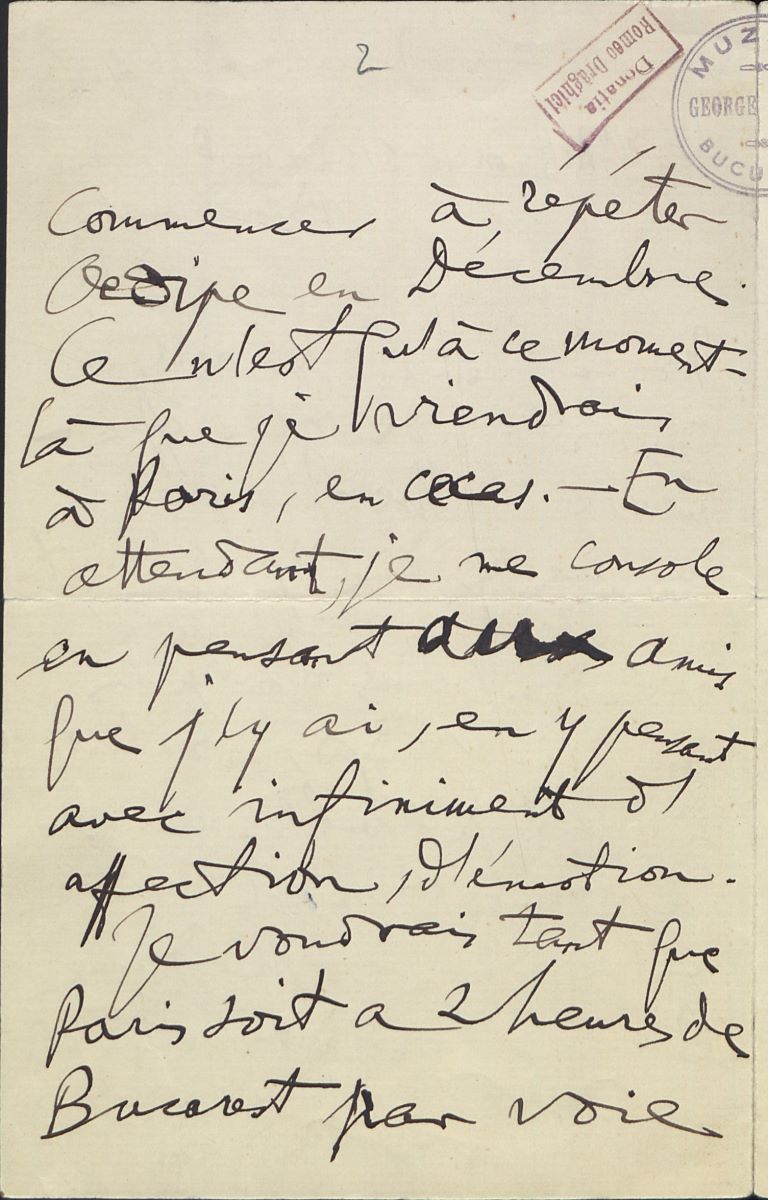 2
Donația
Romeo Drăghici
MUN
GEORGE
BUCU
Commencer à répéter
Oedipe en Décembre.
Ce n'est qu'à ce moment-
là que je viendrais
à Paris, en ce cas. — En
attendant, je me console
en pensant aux amis
que j'y ai, en y pensant
avec infiniment d'
affection, d'émotion.
Je voudrais tant que
Paris soit a 2 heures de
Bucarest par voie